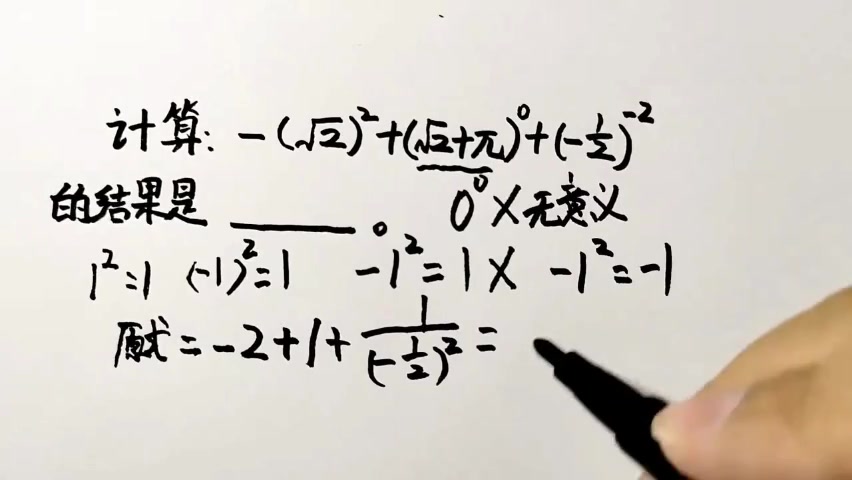 计算: -(√2)²+(√2+π)⁰+(-1/2)⁻²
的结果是______。 0⁰ X 无意义
1²=1 (-1)²=1 -1²=1 X -1²=-1
原式=-2+1+1/(-1/2)²=